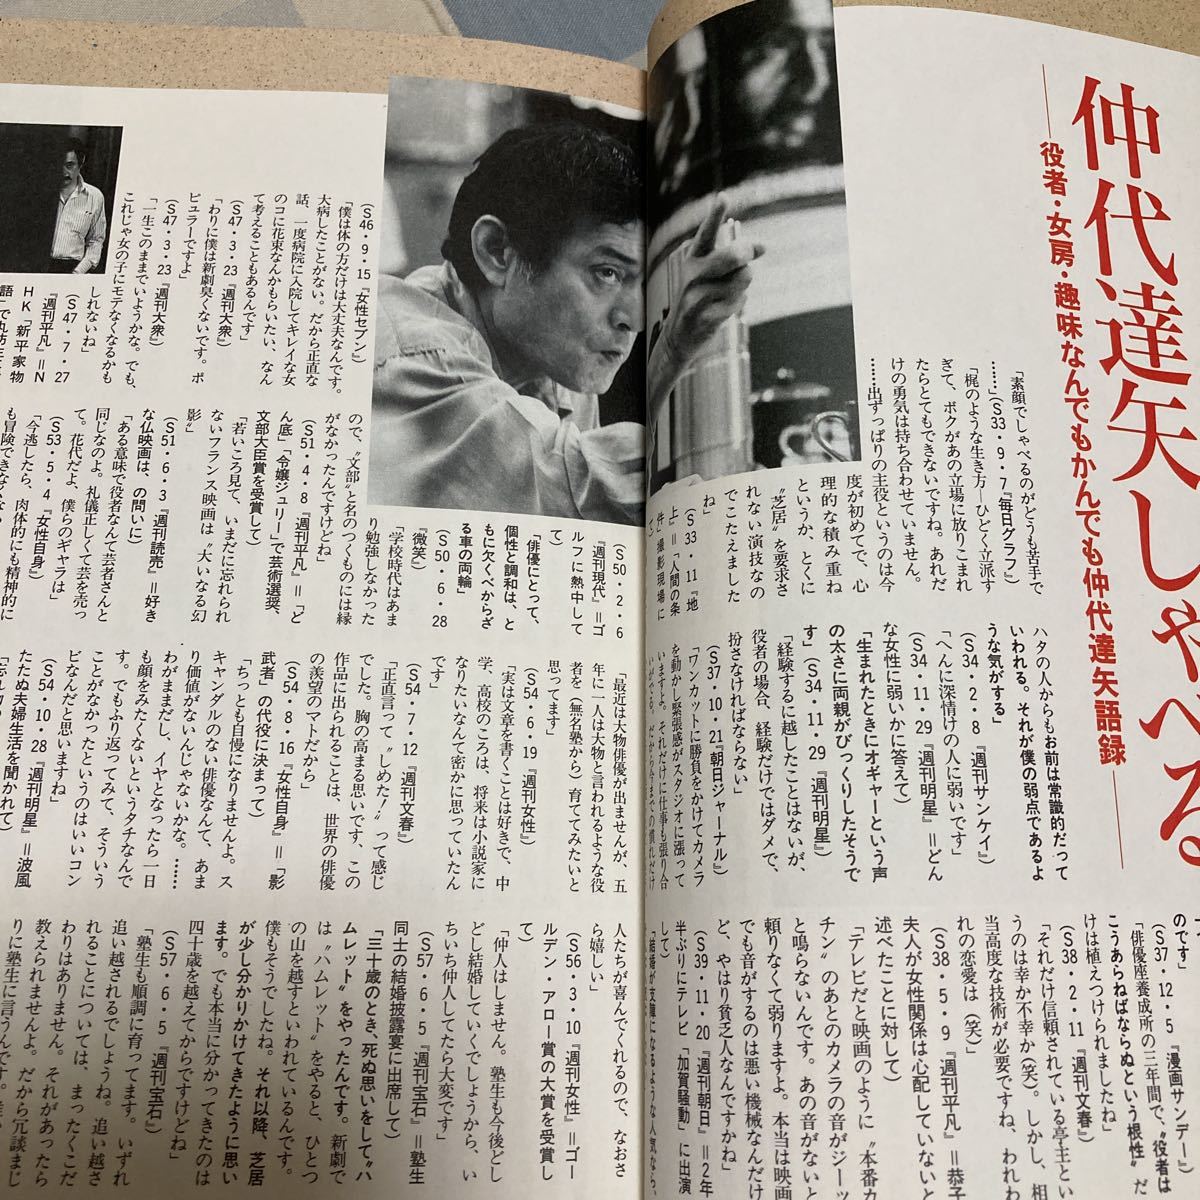 仲代達矢しゃべる
―役者・女房・趣味なんでもかんでも仲代達矢語録―
「素顔でしゃべるのがどうも苦手で
……」(S33・9・7『毎日グラフ』)
「梶のような生き方―ひどく立派す
ぎて、ボクがあの立場に放りこまれ
たらとてもできないですね。あれだ
けの勇気は持ち合わせていません。
……出ずっぱりの主役というのは今
度が初めてで、心
理的な積み重ね
というか、とくに
〝芝居〟を要求さ
れない演技なの
でこたえました
ね」
(S33・11『地
上』＝「人間の条
件」撮影現場に
て)
ハタの人からもお前は常識的だって
いわれる。それが僕の弱点であるよ
うな気がする」
(S34・2・8『週刊サンケイ』)
「へんに深情けの人に弱いです」
(S34・11・29『週刊明星』＝どん
な女性に弱いかに答えて)
「生まれたときにオギャーという声
の太さに両親がびっくりしたそうで
す」(S34・11・29『週刊明星』)
「経験するに越したことはないが、
役者の場合、経験だけではダメで、
扮さなければならない」
(S37・10・21『朝日ジャーナル』)
「ワンカットに勝負をかけてカメラ
を動かし緊張感がスタジオに漲って
いますよ。それだけに仕事も張り合
のです」
(S37・12・5『漫画サンデー』)
「俳優座養成所の三年間で、〝役者は
こうあらねばならぬという根性〟だ
けは植えつけられましたね」
(S38・2・11『週刊文春』)
「それだけ信頼されている亭主とい
うのは幸か不幸か(笑)。しかし、相
当高度な技術が必要ですね、われわ
れの恋愛は(笑)」
(S38・5・9『週刊平凡』＝恭子
夫人が女性関係は心配していないと
述べたことに対して)
「テレビだと映画のように〝本番カ
チン〟のあとのカメラの音がジーッ
と鳴らないんです。あの音がないと
頼りなくて弱りますよ。本当は映画
でも音がするのは悪い機械なんだけ
ど、やはり貧乏人なんですかね」
(S39・11・20『週刊朝日』＝2年
半ぶりにテレビ「加賀騒動」に出演
(S46・9・15『女性セブン』)
「僕は体の方だけは大丈夫なんです。
大病したことがない。だから正直な
話、一度病院に入院してキレイな女
のコに花束なんかもらいたい、なん
て考えることもあるんです」
(S47・3・23『週刊大衆』)
「わりに僕は新劇臭くないです。ポ
ピュラーですよ」
(S47・3・23『週刊大衆』)
「一生このままでいようかな。でも、
これじゃ女の子にモテなくなるかも
しれないね」
(S47・7・27
『週刊平凡』＝N
HK「新平家物
(S50・2・6
『週刊現代』＝ゴ
ルフに熱中して
て)
「俳優にとって、
個性と調和は、と
もに欠くべからざ
る車の両輪」
(S50・6・28
『微笑』)
「学校時代はあま
り勉強しなかった
ので、〝文部〟と名のつくものには縁
がなかったんですけどね」
(S51・4・8『週刊平凡』＝「ど
ん底」「令嬢ジュリー」で芸術選奨、
文部大臣賞を受賞して)
「若いころ見て、いまだに忘れられ
ないフランス映画は〝大いなる幻
影〟」
(S51・6・3『週刊読売』＝好き
な仏映画は、の問いに)
「ある意味で役者なんて芸者さんと
同じなのよ。礼儀正しくて芸を売っ
て。花代だよ、僕らのギャラは」
(S53・5・4『女性自身』)
「今逃したら、肉体的にも精神的に
「最近は大物俳優が出ませんが、五
年に一人は大物と言われるような役
者を(無名塾から)育ててみたいと
思ってます」
(S54・6・19『週刊女性』)
「実は文章を書くことは好きで、中
学、高校のころは、将来は小説家に
なりたいなんて密かに思っていたん
です」
(S54・7・12『週刊文春』)
「正直言って〝しめた!〟って感じ
でした。胸の高まる思いです、この
作品に出られることは、世界の俳優
の羨望のマトだから」
(S54・8・16『女性自身』＝「影
武者」の代役に決まって)
「ちっとも自慢になりませんよ。ス
キャンダルのない俳優なんて、あま
り価値がないんじゃないかな。……
わがままだし、イヤとなったら一日
も顔をみたくないというタチなんで
す。でもふり返ってみて、そういう
ことがなかったというのはいいコン
ビなんだと思いますね」
(S54・10・28『週刊明星』＝波風
たたぬ夫婦生活を聞かれて)
人たちが喜んでくれるので、なおさ
ら嬉しい」
(S56・3・10『週刊女性』＝ゴー
ルデン・アロー賞の大賞を受賞し
て)
「仲人はしません。塾生も今後どし
どし結婚していくでしょうから、い
ちいち仲人してたら大変です」
(S57・6・5『週刊宝石』＝塾生
同士の結婚披露宴に出席して)
「三十歳のとき、死ぬ思いをして〝ハ
ムレット〟をやったんです。新劇で
は〝ハムレット〟をやると、ひとつ
の山を越すといわれているんです。
僕もそうでしたね。それ以降、芝居
が少し分かりかけてきたように思い
ます。でも本当に分かってきたのは
四十歳を越えてからですけどね」
(S57・6・5『週刊宝石』)
「塾生も順調に育ってます。いずれ
追い越されるでしょうね。追い越さ
れることについては、まったくこだ
わりはありません。それがあったら
教えられませんよ。だから冗談まじ
りに塾生に言うんです。